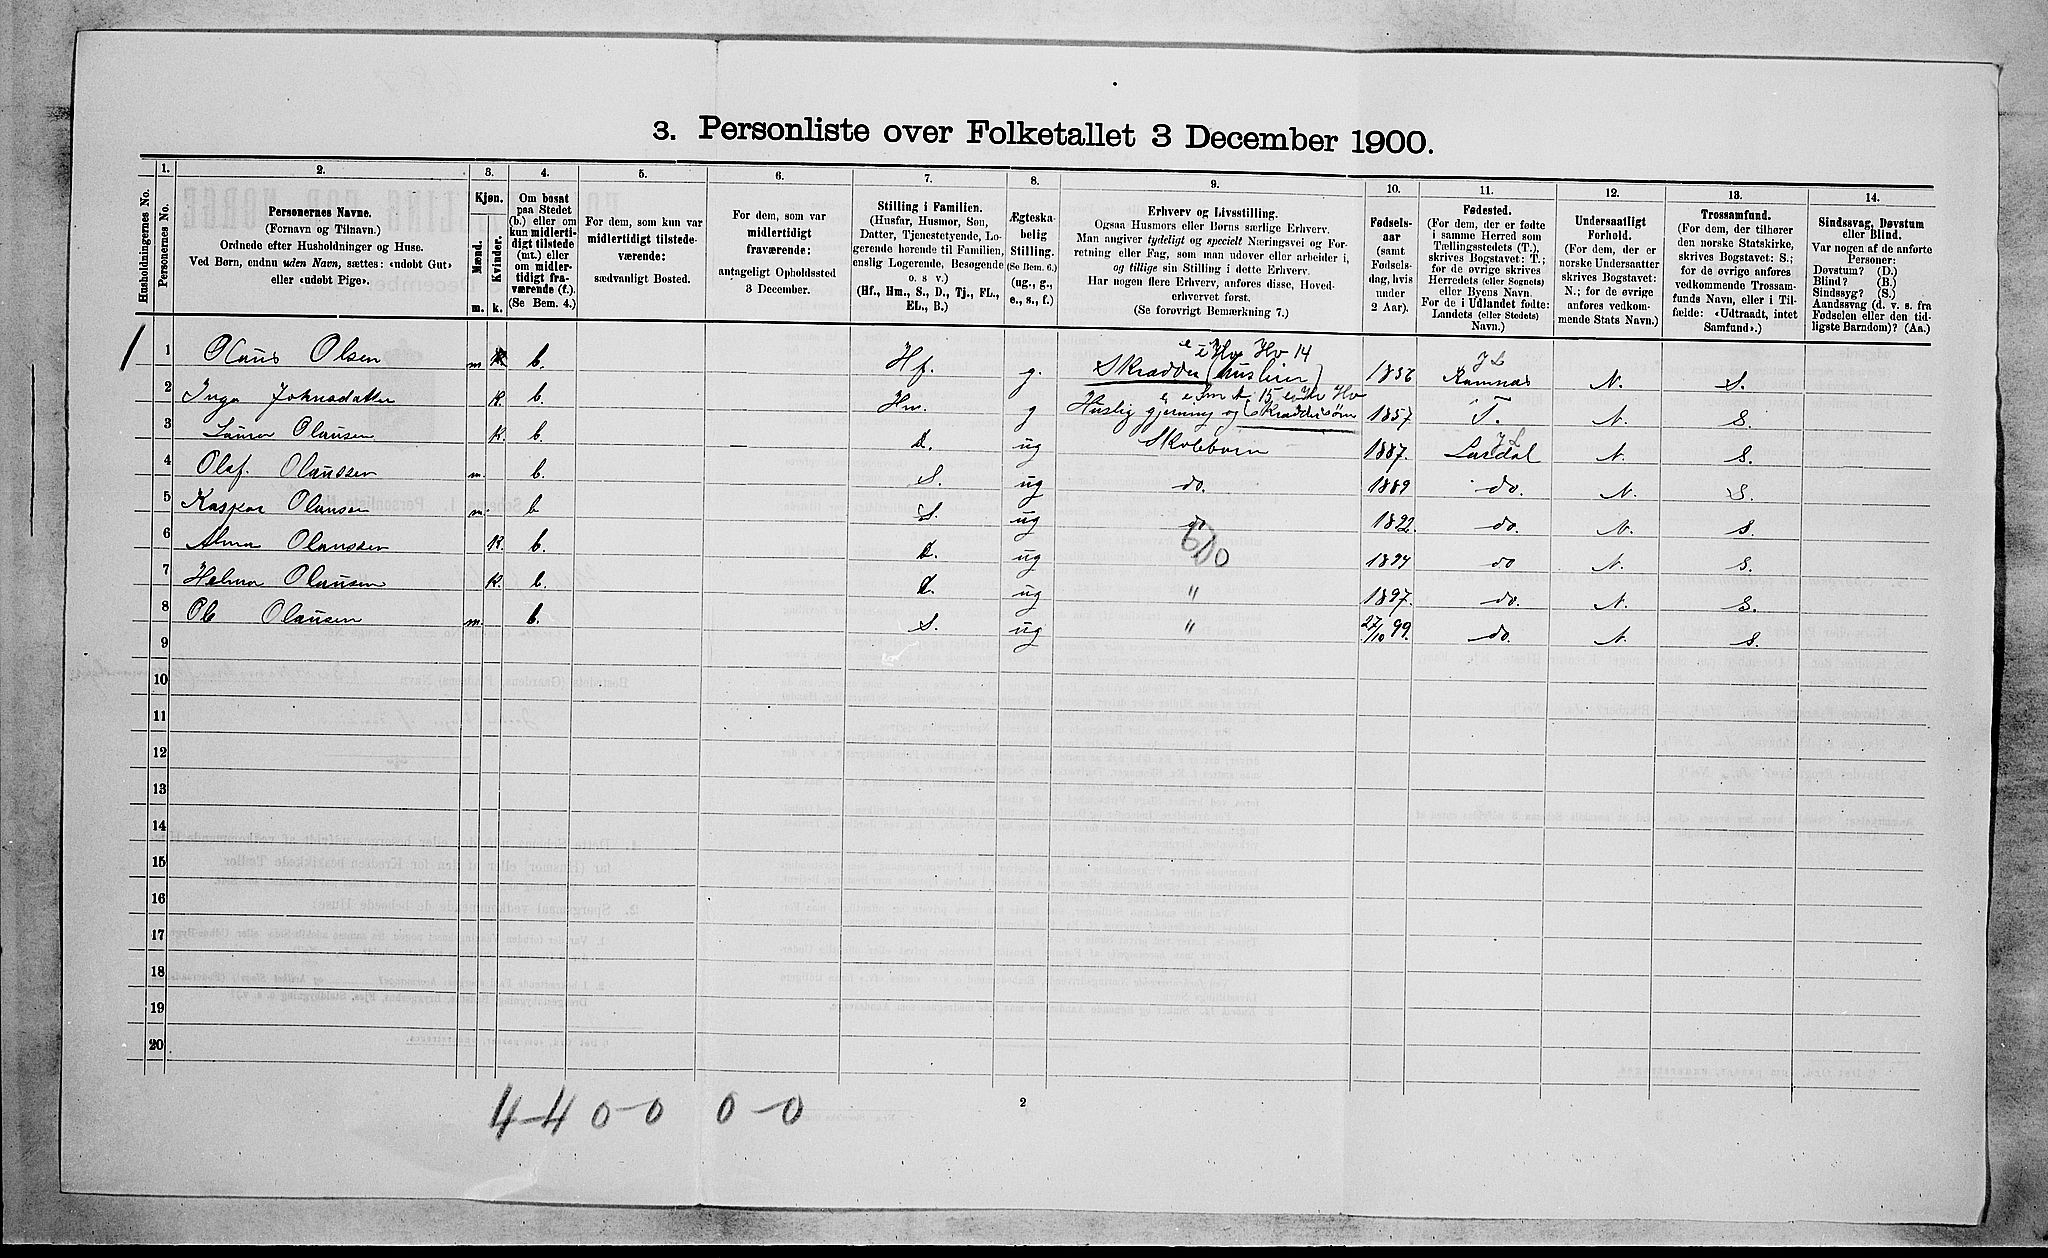 3. Personliste over Folketallet 3 December 1900.
Husholdningernes No.
1.
Personernes No.
2.
Personernes Navne.
(Fornavn og Tilnavn.)
Ordnede efter Husholdninger og Huse.
Ved Børn, endnu uden Navn, sættes: «udøbt Gut»
eller «udøbt Pige».
3.
Kjøn.
Mænd.
Kvinder.
m. k.
4.
Om bosat
paa Stedet
(b.) eller om
kun midlerti-
digt tilstede
(mt.) eller
om midler-
tidigt fra-
værende (f.)
(Se Bem. 4.)
5.
For dem, som kun var
midlertidigt tilstede-
værende:
sædvanligt Bosted.
6.
For dem, som var
midlertidigt
fraværende:
antageligt Opholdssted
3 December.
7.
Stilling i Familien.
(Husfar, Husmor, Søn,
Datter, Tjenestetyende, Lo-
gerende hørende til Familien,
enslig Logerende, Besøgende
o. s v.)
(Hf., Hm., S., D., Tj., FL.,
EL., B.)
8.
Ægteska-
belig
Stilling.
(Se Bem. 6.)
(ug., g.,
e., s., f.)
9.
Erhverv og Livsstilling.
Ogsaa Husmors eller Børns særlige Erhverv.
Man angiver tydeligt og specielt Næringsvei og For-
retning eller Fag, som man udover eller arbeider i,
og tillige sin Stilling i dette Erhverv.
Har nogen flere Erhverv, anføres disse, Hoved-
erhvervet først.
(Se forøvrigt Bemærkning 7.)
10.
Fødsels-
aar
(samt
Fødsels-
dag, hvis
under
2 Aar).
11.
Fødested.
(For dem, der er fødte
i samme Herred som
Tællingsstedets (T.),
skrives Bogstavet: T.;
for de øvrige skrives
Herredets (eller Sognets)
eller Byens Navn.
For de i Udlandet fødte:
Landets (eller Stedets)
Navn.)
12.
Undersaatligt
Forhold.
(For dem, der er
norske Undersaatter
skrives Bogstavet:
N.; for de øvrige
anføres vedkom-
mende Stats Navn.)
13.
Trossamfund.
(For dem, der tilhører
den norske Statskirke,
skrives Bogstavet: S.;
for de øvrige anføres
vedkommende Trossam-
funds Navn, eller i Til-
fælde: «Udtraadt, intet
Samfund».)
14.
Sindssvag, Døvstum
eller Blind.
Var nogen af de anførte
Personer:
Døvstum? (D.)
Blind? (B.)
Sindssyg? (S.)
Aandssvag (d. v. s. fra
Fødselen eller den tid-
ligste Barndom)? (Aa.)
Hv 14
1 1 Olaus Olsen m b. Hf. g. Skrædder (husleier) 1856 J L Ramnæs N. S.
2 Inga Johnsdatter k. b. Hm. g Huslig gjerning og skræddersøm 1857 T. N. S.
3 Laura Olausen k. b. d. ug Skolebarn 1887. J L Lardal N. S.
4 Olaf. Olaussen m. b. S. ug do. 1889 do. N. S.
5 Kaspar Olaussen m. b S. ug do 1892. do. N. S.
6 Alma Olaussen k. b. d. ug 1894 do N. S.
7 Helma Olausen k. b. d. ug " 1897. do. N. S.
8 Ole Olausen m. b. S. ug " 27/10 99. do. N. S.
9
10
11
12
13
14
15
16
17
18
19
20
4-4 0-0 0-0
2